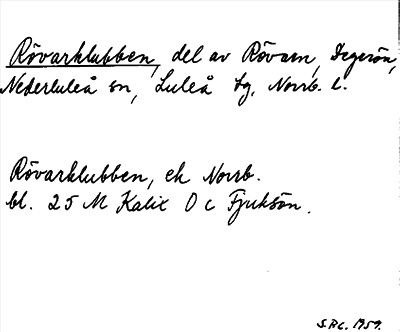 Rövarklubben, del av Rövarn, Degerön,
Nederluleå sn, Luleå tg, Norrb. l.
Rövarklubben, ek Norrb.
bl. 25 M Kalix O c Fjuksön.
1959.